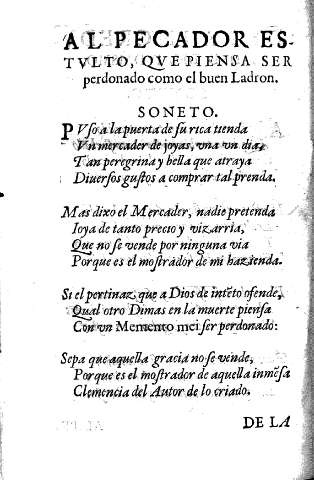 AL PECADOR ES-
TVLTO, QVE PIENSA SER
perdonado como el buen Ladron.
SONETO.
PVso a la puerta de su rica tienda
Vn mercader de joyas, vna vn dia,
Tan peregrina y bella que atraya
Diuersos gustos a comprar tal prenda.
Mas dixo el Mercader, nadie pretenda
Ioya de tanto precio y vizarria,
Que no se vende por ninguna via
Porque es el mostrador de mi hazienda.
Si el pertinaz que a Dios de inteto ofende,
Qual otro Dimas en la muerte piensa
Con vn Memento mei ser perdonado:
Sepa que aquella gracia no se vende,
Porque es el mostrador de aquella inmẽsa
Clemencia del Autor de lo criado.
DE LA